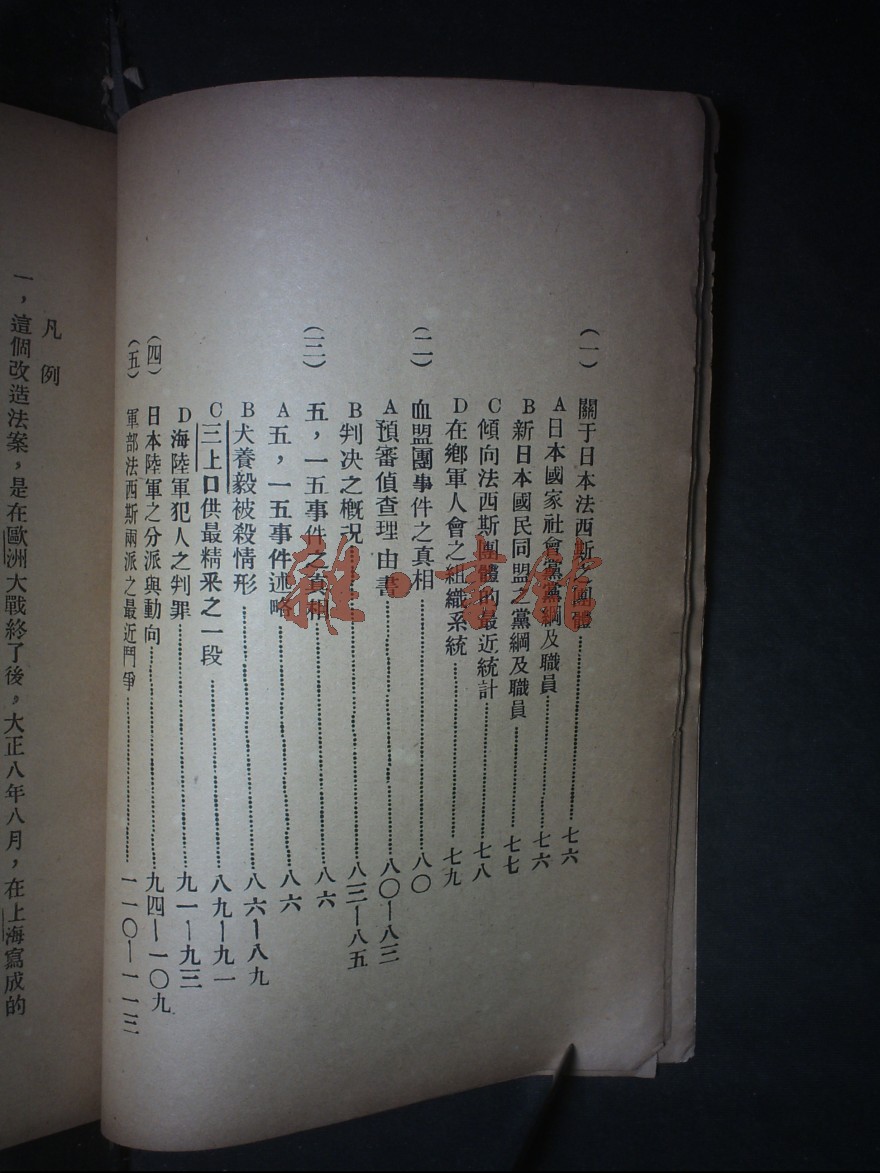 (一) 關于日本法西斯之團體……七六
A日本國家社會黨黨綱及職員……七六
B新日本國民同盟之黨綱及職員……七七
C傾向法西斯團體的最近統計……七八
D在鄉軍人會之組織系統……七九
(二) 血盟團事件之真相……八〇
A預審偵查理由書……八〇—八三
B判決之槪况……八三—八五
(三) 五，一五事件之真相……八六
A五，一五事件述略……八六
B犬養毅被殺情形……八六—八九
C三上口供最精釆之一段……八九—九一
D海陸軍犯人之判罪……九一—九三
(四) 日本陸軍之分派與動向……九四—一〇九
(五) 軍部法西斯兩派之最近鬥爭……一一〇—一一三
凡例
一，這個改造法案，是在歐洲大戰終了後，大正八年八月，在上海寫成的
雜·書館